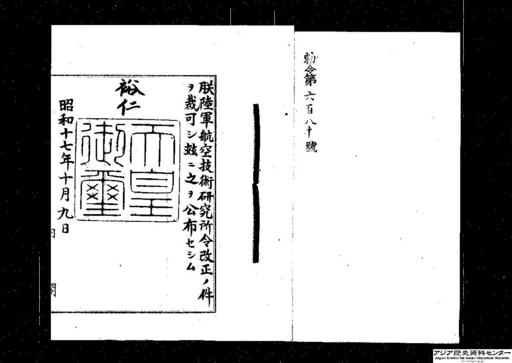 勅令第六百八十號
朕陸軍航空技術研究所令改正ノ件
ヲ裁可シ玆ニ之ヲ公布セシム
裕仁
天皇
御璽
昭和十七年十月九日
内閣
アジア歴史資料センター
Japan Center for Asian Historical Records